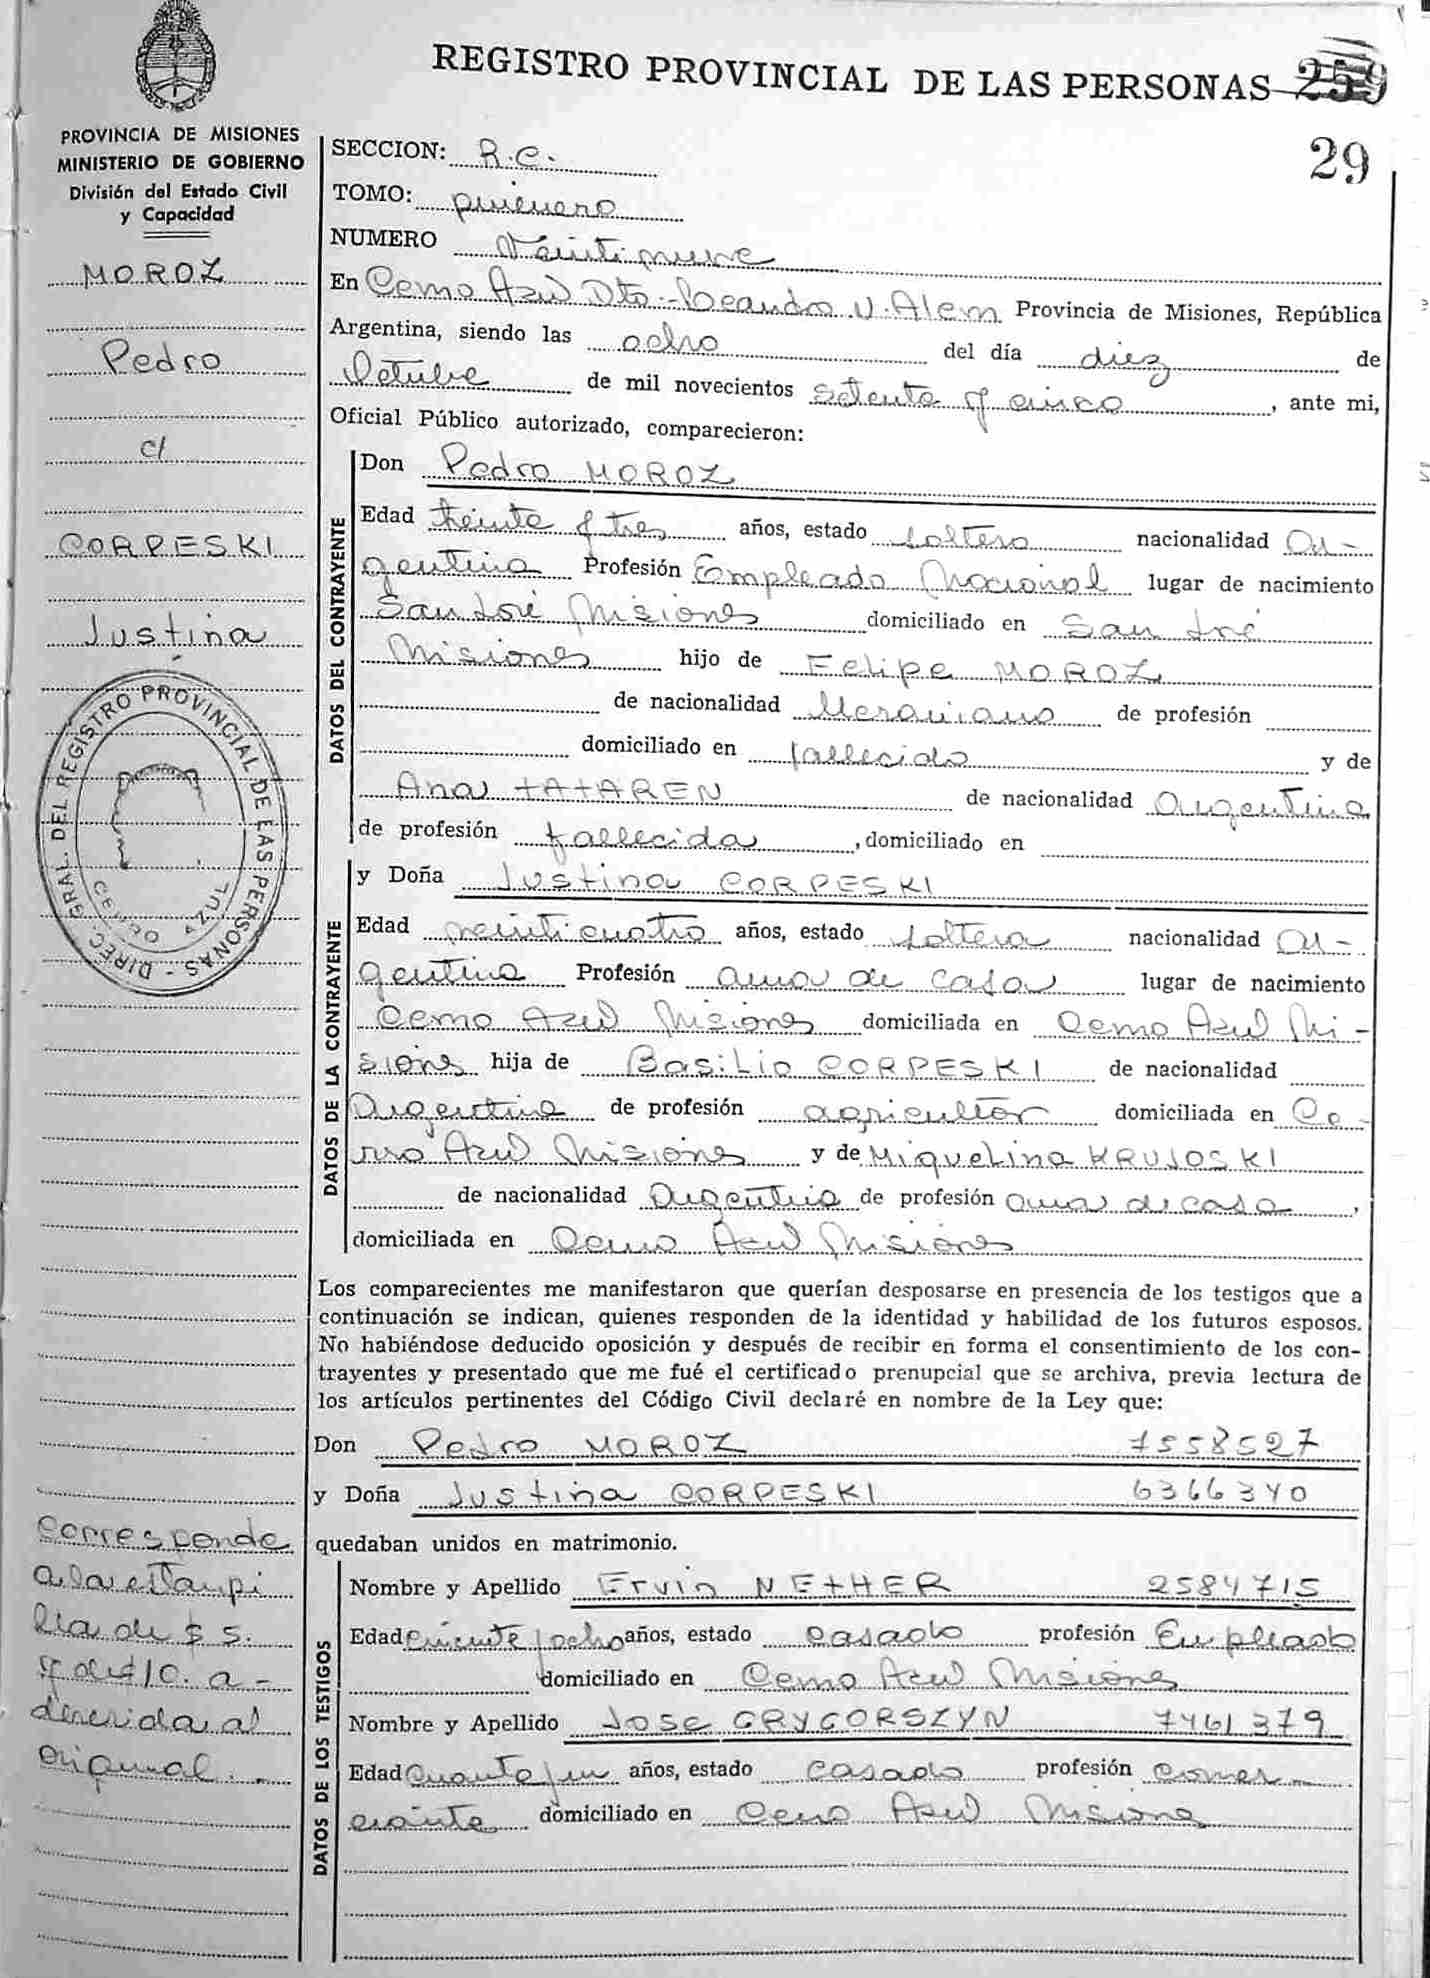 REGISTRO PROVINCIAL DE LAS PERSONAS 259
29
PROVINCIA DE MISIONES
MINISTERIO DE GOBIERNO
División del Estado Civil
y Capacidad
MOROZ
Pedro
c/
CORPESKI
Justina
DIREC. GRAL. DEL REGISTRO PROVINCIAL DE LAS PERSONAS -
CERRO AZUL
Corresponde
a la estampi
lla de $ 5.
y de $ 10. a-
dherida al
original.-
SECCION: R.C.
TOMO: primero
NUMERO Veintinueve
En Cerro Azul Dto. Leandro N. Alem Provincia de Misiones, República
Argentina, siendo las ocho del día diez de
Octubre de mil novecientos setenta y cinco, ante mi,
Oficial Público autorizado, comparecieron:
DATOS DEL CONTRAYENTE
Don Pedro MOROZ
Edad treinta y tres años, estado soltero nacionalidad Ar-
gentina Profesión Empleado Nacional lugar de nacimiento
San José Misiones domiciliado en San José
Misiones hijo de Felipe MOROZ
de nacionalidad Ucraniano de profesión
domiciliado en fallecido y de
Ana TATAREN de nacionalidad Argentina
de profesión fallecida, domiciliado en
DATOS DE LA CONTRAYENTE
y Doña Justina CORPESKI
Edad veinticuatro años, estado soltera nacionalidad Ar-
gentina Profesión ama de casa lugar de nacimiento
Cerro Azul Misiones domiciliada en Cerro Azul Mi-
siones hija de Basilio CORPESKI de nacionalidad
Argentina de profesión agricultor domiciliada en Ce-
rro Azul Misiones y de Miquelina KRUJOSKI
de nacionalidad Argentina de profesión ama de casa,
domiciliada en Cerro Azul Misiones
Los comparecientes me manifestaron que querían desposarse en presencia de los testigos que a
continuación se indican, quienes responden de la identidad y habilidad de los futuros esposos.
No habiéndose deducido oposición y después de recibir en forma el consentimiento de los con-
trayentes y presentado que me fué el certificado prenupcial que se archiva, previa lectura de
los artículos pertinentes del Código Civil declaré en nombre de la Ley que:
Don Pedro MOROZ 7558527
y Doña Justina CORPESKI 6366340
quedaban unidos en matrimonio.
DATOS DE LOS TESTIGOS
Nombre y Apellido Ervin NETHER 2584715
Edad cincuenta y ocho años, estado casado profesión Empleado
domiciliado en Cerro Azul Misiones
Nombre y Apellido JOSE GRYGORSZYN 7461379
Edad Cuarenta y un años, estado casado profesión comer-
ciante domiciliado en Cerro Azul Misiones